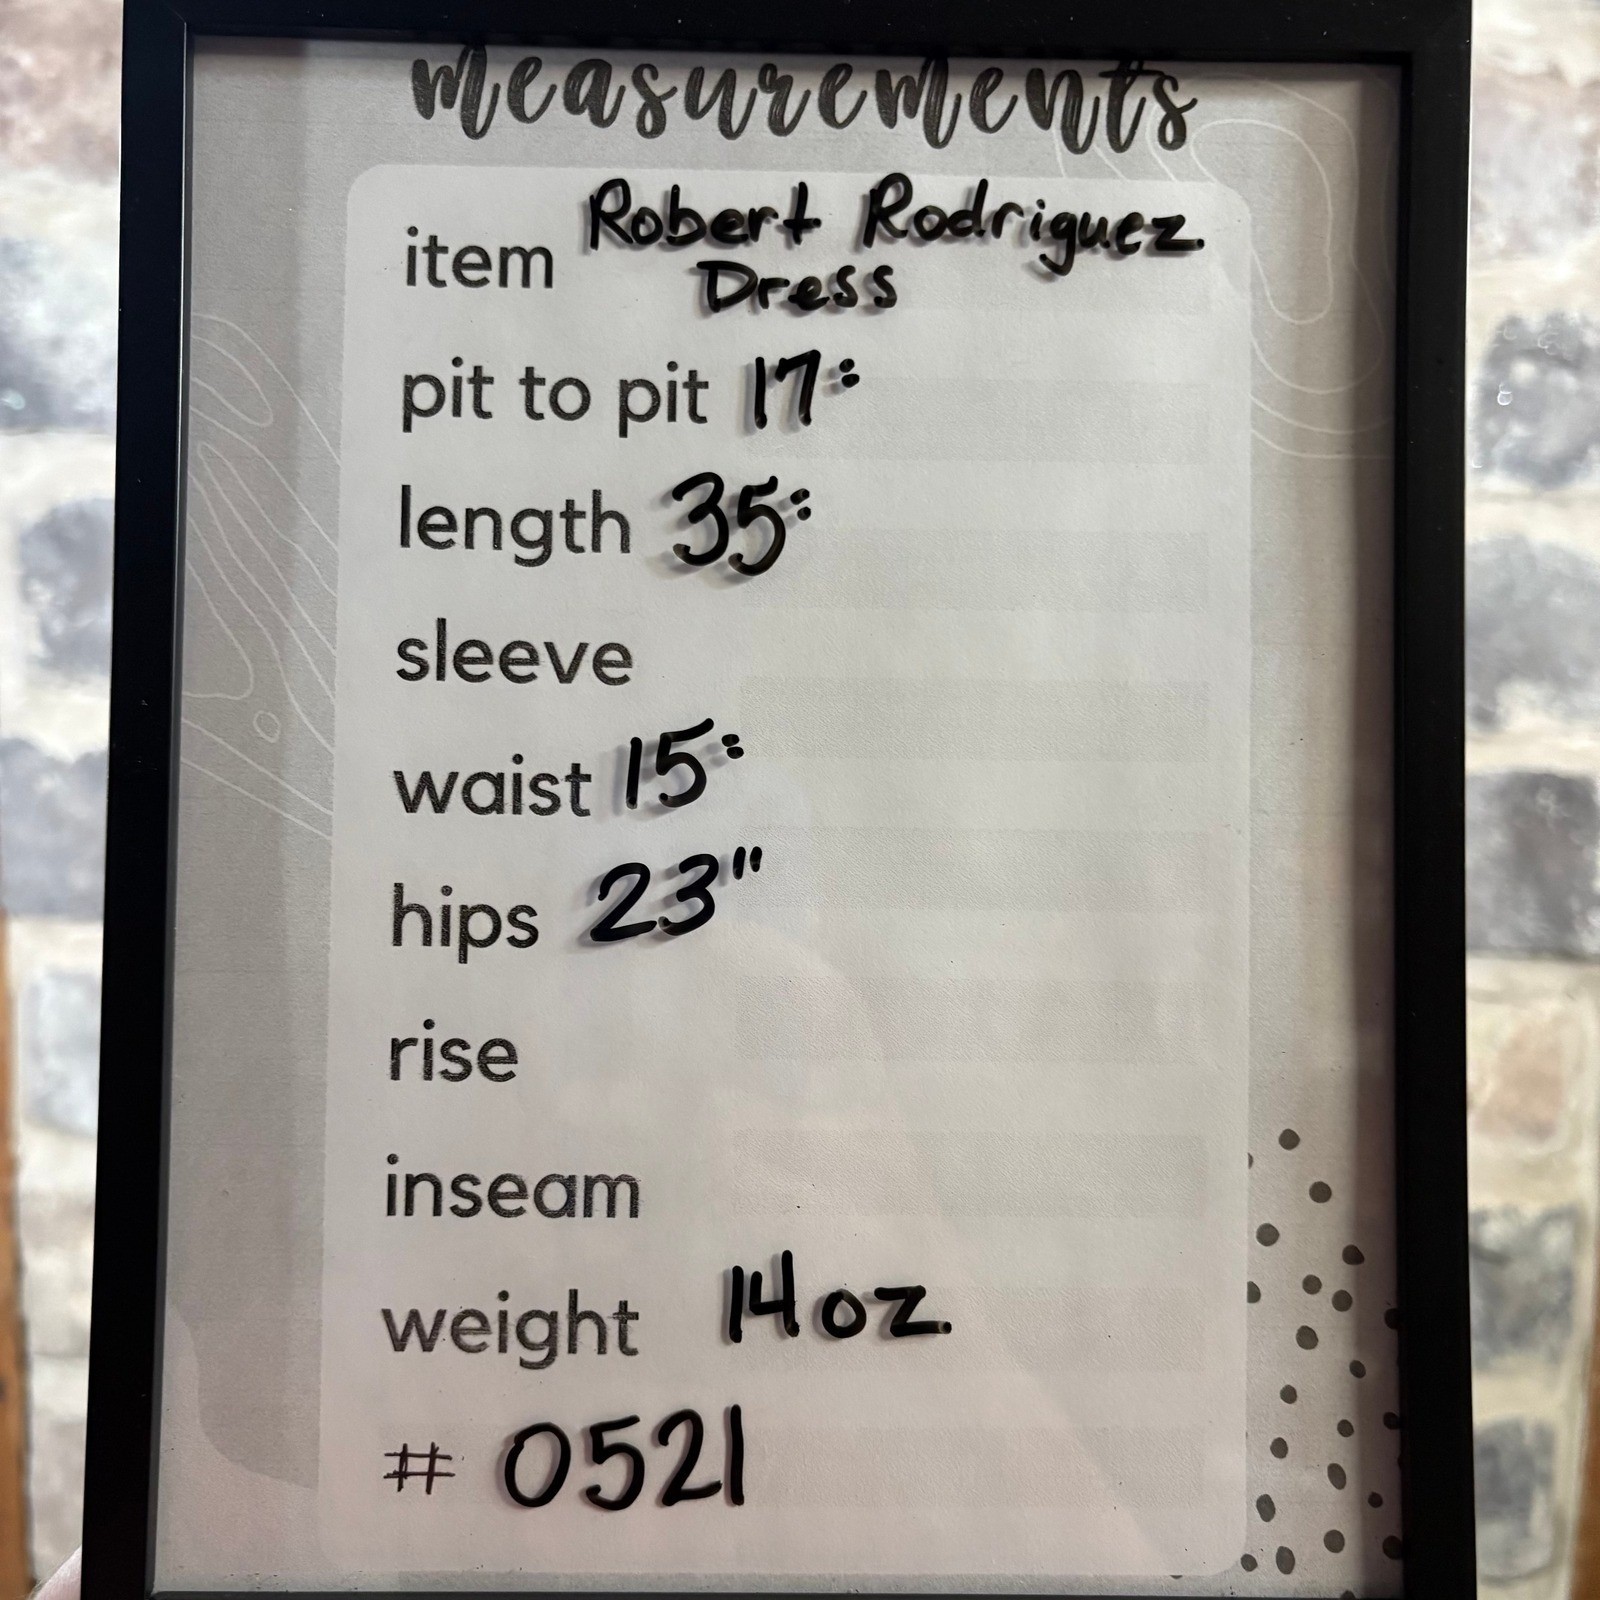 measurements
item Robert Rodriguez
Dress
pit to pit 17"
length 35"
sleeve
waist 15"
hips 23"
rise
inseam
weight 14oz.
# 0521